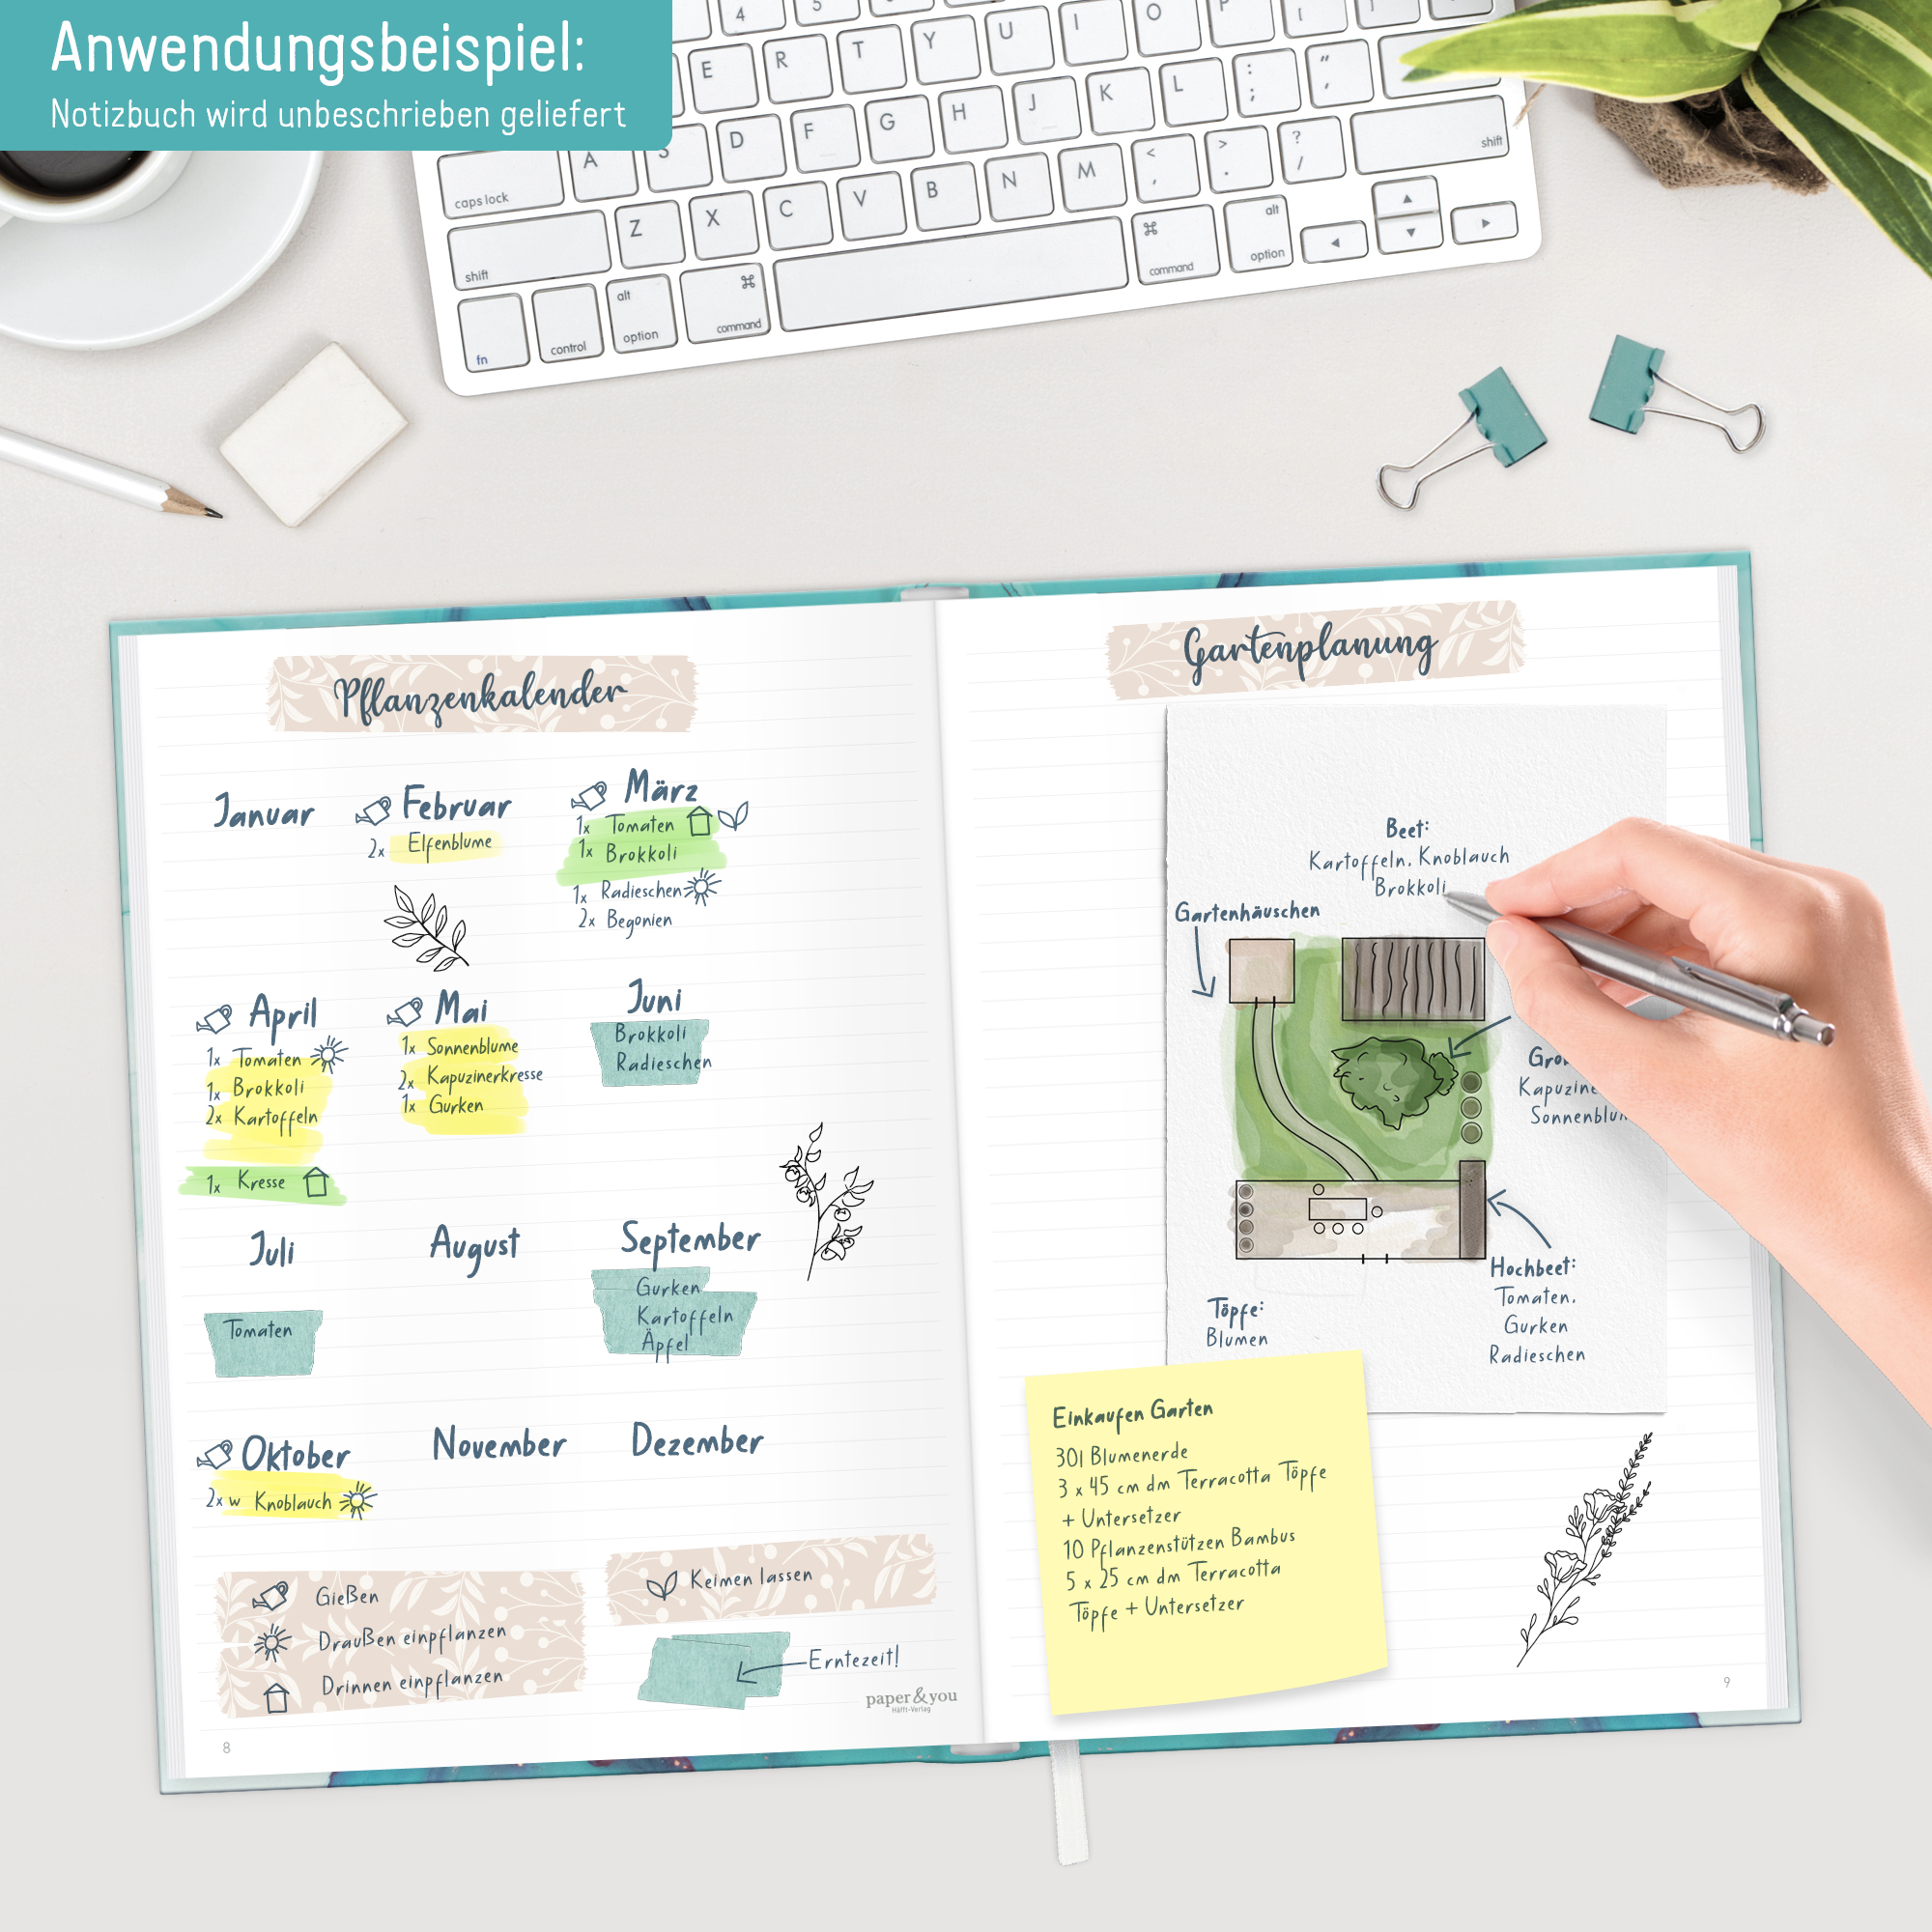 Anwendungsbeispiel:
Notizbuch wird unbeschrieben geliefert
4 5
E R T Y U I O P [ ]
caps lock A S D F G H J K L : ; " ,
shift Z X C V B N M < , > . ? / shift
fn control alt option ⌘ command ⌘ command alt option
Pflanzenkalender
Januar
Februar
2x Elfenblume
März
1x Tomaten
1x Brokkoli
1x Radieschen
2x Begonien
April
1x Tomaten
1x Brokkoli
2x Kartoffeln
1x Kresse
Mai
1x Sonnenblume
2x Kapuzinerkresse
1x Gurken
Juni
Brokkoli
Radieschen
Juli
Tomaten
August
September
Gurken
Kartoffeln
Äpfel
Oktober
2x w Knoblauch
November
Dezember
Gießen
Draußen einpflanzen
Drinnen einpflanzen
Keimen lassen
Erntezeit!
paper&you
Häfft-Verlag
8
Gartenplanung
Beet:
Kartoffeln, Knoblauch
Brokkoli
Gartenhäuschen
Hochbeet:
Tomaten,
Gurken
Radieschen
Töpfe:
Blumen
Einkaufen Garten
30l Blumenerde
3 x 45 cm dm Terracotta Töpfe
+ Untersetzer
10 Pflanzenstützen Bambus
5 x 25 cm dm Terracotta
Töpfe + Untersetzer
9